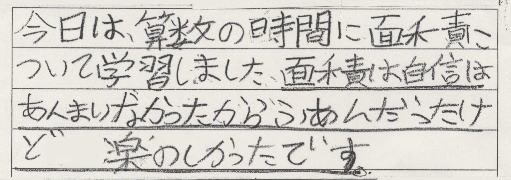 今日は、算数の時間に面積に
ついて学習しました、面積は自信は
あんまりなかったからふあんだったけ
ど 楽のしかったです。